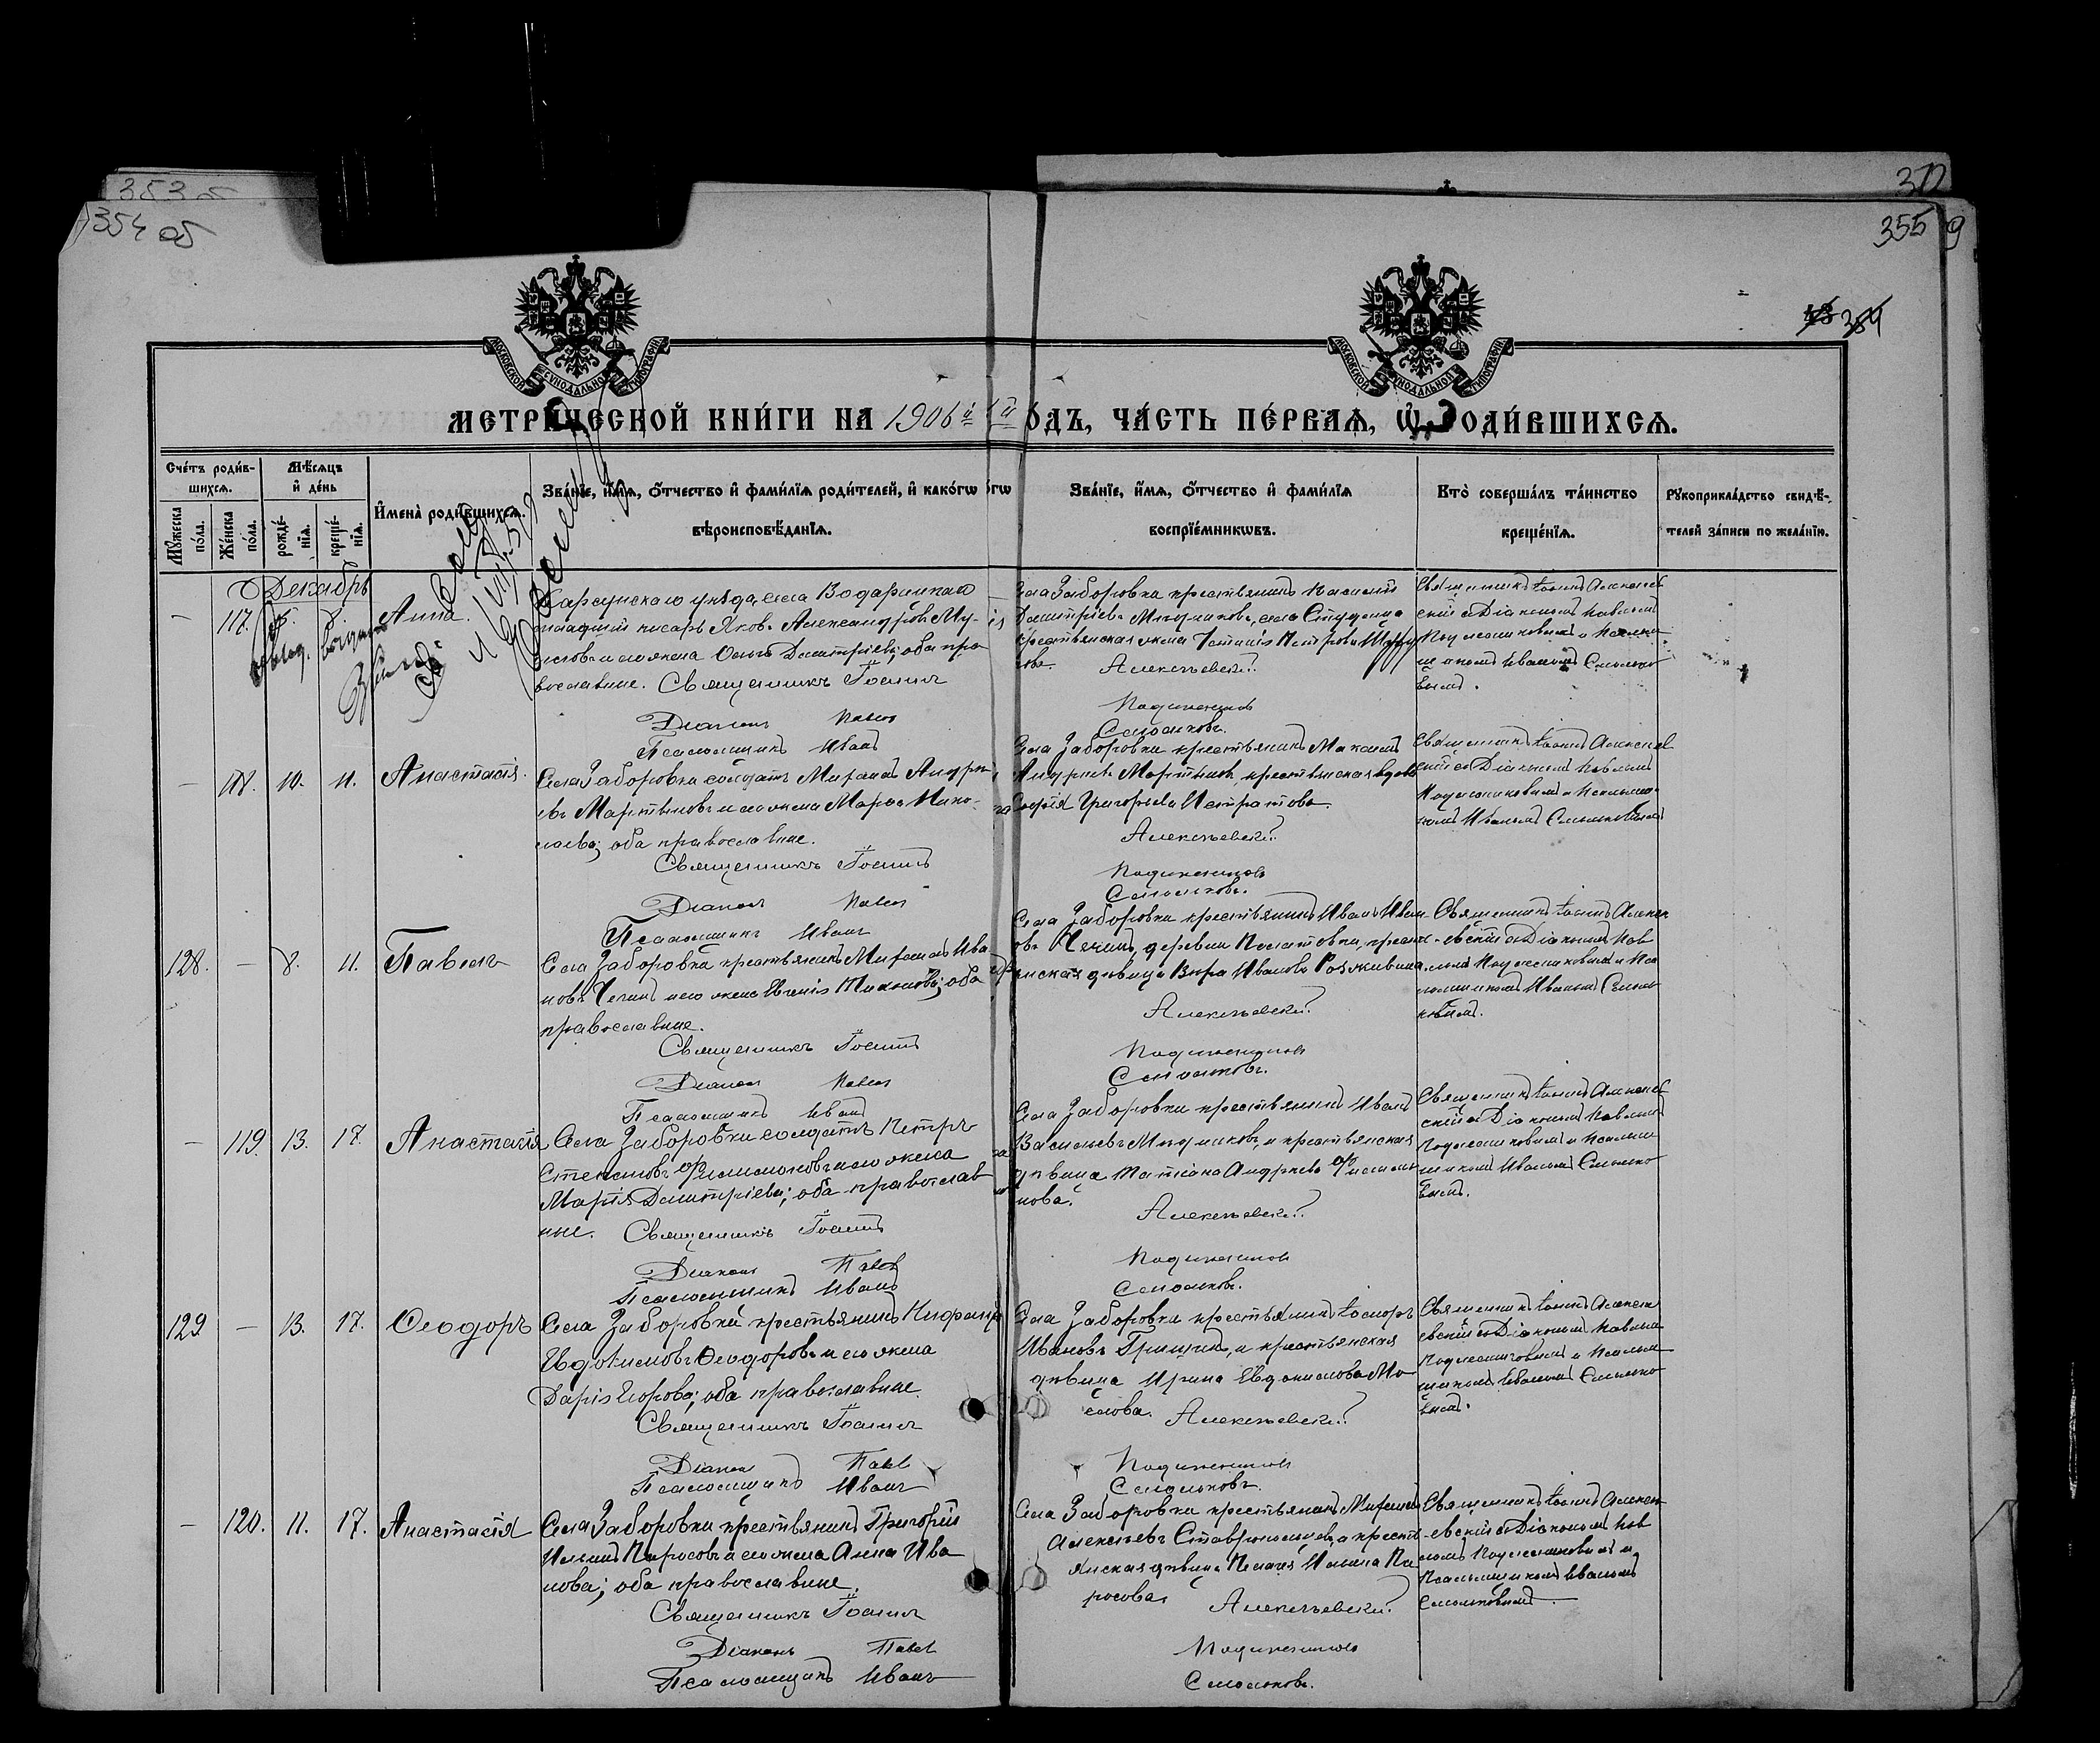 353 об
354 об
370
355
9
354
МОСКОВСКОЙ СѴНОДАЛЬНОЙ ТИПОГРАФІИ
МОСКОВСКОЙ СѴНОДАЛЬНОЙ ТИПОГРАФІИ
МЕТРИЧЕСКОЙ КНИГИ НА 1906й ГОДЪ, ЧАСТЬ ПЕРВАЯ, Ѡ РОДИВШИХСЯ.
Счетъ родив-
шихся.
Мѣсяцъ
и день
Мужеска пола.
Женска пола.
рожде-нія.
креще-нія.
Имена родившихся.
Званіе, имя, отчество и фамилія родителей, и какогѡ
вѣроисповѣданія.
Званіе, имя, отчество и фамилія
воспріемникѡвъ.
Кто совершалъ таинство
крещенія.
Рукоприкладство свидѣ-
телей записи по желанію.
Декабрь
— 117. Анна.
Карсунскаго уѣзда, села
писарь Яковъ Александровъ
и его жена Ольга Димитріева; оба пра
вославные. Священникъ Іоаннъ
Діаконъ Павелъ
Псаломщикъ Иванъ
Села Заборовки крестьянинъ Василій
Димитріевъ Мѣдниковъ, села
крестьянская жена Петрова
Алексѣевскій
Подлесниковъ
Смольковъ.
Священникъ Іоаннъ Алексѣев
скій съ Діакономъ Павломъ
Подлесниковымъ и Псалом
щикомъ Иваномъ Смолько
вымъ.
— 118. 10. 11. Анастасія.
Села Заборовки солдатъ Андре
евъ Мартыновъ и его жена Нико-
лаева; оба православные.
Священникъ Іоаннъ
Діаконъ Павелъ
Псаломщикъ Иванъ
Села Заборовки крестьянинъ Максимъ
Андреевъ Мартыновъ, крестьянская вдова
Софія Григорьева
Алексѣевскій
Подлесниковъ
Смольковъ.
Священникъ Іоаннъ Алексѣев
скій съ Діакономъ Павломъ
Подлесниковымъ и Псаломщи
комъ Иваномъ Смольковымъ
128. — 8. 11. Павелъ
Села Заборовки крестьянинъ Ива
новъ и его жена Евгенія; оба
православные.
Священникъ Іоаннъ
Діаконъ Павелъ
Псаломщикъ Иванъ
Села Заборовки крестьянинъ Иванъ Иван
овъ, деревни крестья
нская дѣвица Вѣра Иванова
Алексѣевскій
Подлесниковъ
Смольковъ.
Священникъ Іоаннъ Алексѣ
евскій съ Діакономъ Пав
ломъ Подлесниковымъ и Пса
ломщикомъ Иваномъ Смоль
ковымъ.
— 119. 13. 17. Анастасія
Села Заборовки солдатъ Петръ
Степановъ Филимоновъ и его жена
Марія Димитріева; оба православ
ные. Священникъ Іоаннъ
Діаконъ Павелъ
Псаломщикъ Иванъ
Села Заборовки крестьянинъ Иванъ
Васильевъ Мѣдниковъ, и крестьянская
дѣвица Татіана Андреева Филимо
нова.
Алексѣевскій
Подлесниковъ
Смольковъ.
Священникъ Іоаннъ Алексѣев
скій съ Діакономъ Павломъ
Подлесниковымъ и Псалом
щикомъ Иваномъ Смолько
вымъ.
129 — 13. 17. Ѳеодоръ
Села Заборовки крестьянинъ
Евдокимовъ Ѳеодоровъ и его жена
Дарія Егорова; оба православные.
Священникъ Іоаннъ
Діаконъ Павелъ
Псаломщикъ Иванъ
Села Заборовки крестьянинъ
Ивановъ Гришинъ, и крестьянская
дѣвица Ирина Евдокимова
Алексѣевскій
Подлесниковъ
Смольковъ.
Священникъ Іоаннъ Алексѣ
евскій съ Діакономъ Павломъ
Подлесниковымъ и Псалом
щикомъ Иваномъ Смолько
вымъ.
— 120. 11. 17. Анастасія
Села Заборовки крестьянинъ Григорій
Ильинъ Паросовъ и его жена Анна Ива
нова; оба православные.
Священникъ Іоаннъ
Діаконъ Павелъ
Псаломщикъ Иванъ
Села Заборовки крестьянинъ
Алексѣевъ и кресть
янская дѣвица Пелагія Ильина Па
росова.
Алексѣевскій
Подлесниковъ
Смольковъ.
Священникъ Іоаннъ Алексѣ
евскій съ Діакономъ Пав
ломъ Подлесниковымъ и
Псаломщикомъ Иваномъ
Смольковымъ.